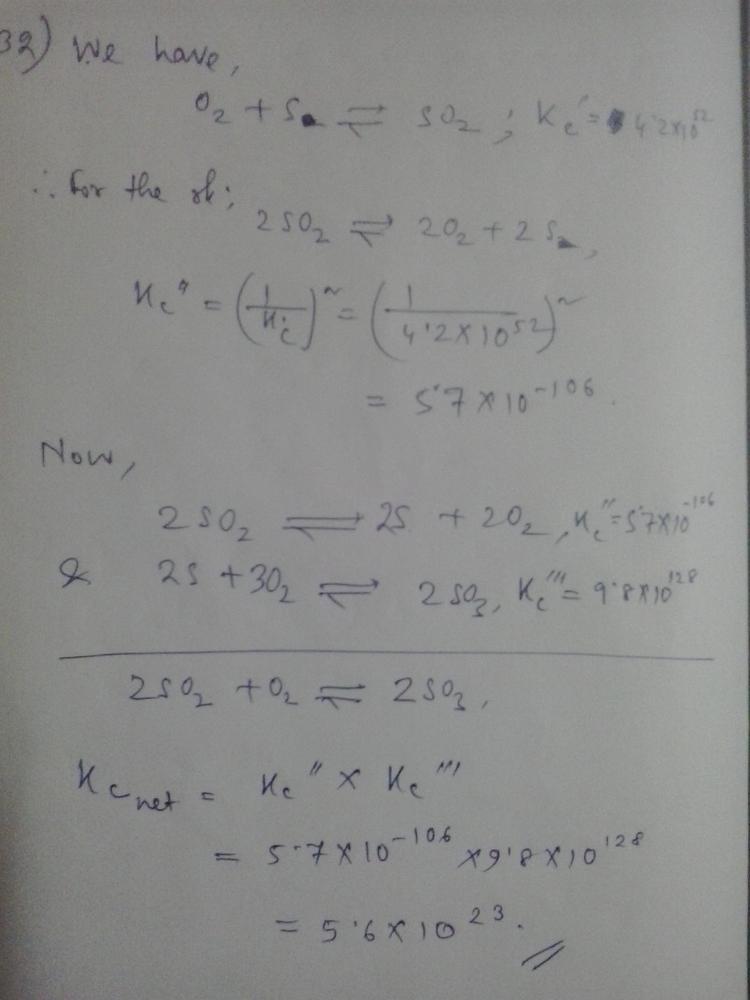 32) We have,
O₂ + S ⇌ SO₂ ; Kc' = 4.2×10⁵²
∴ For the rk;
2SO₂ ⇌ 2O₂ + 2S,
Kc'' = (1/Kc')~ = (1/4.2×10⁵²)~
= 5.7×10⁻¹⁰⁶.
Now,
2SO₂ ⇌ 2S + 2O₂, Kc'' = 5.7×10⁻¹⁰⁶
& 2S + 3O₂ ⇌ 2SO₃, Kc''' = 9.8×10¹²⁸
2SO₂ + O₂ ⇌ 2SO₃,
Kc net = Kc'' × Kc'''
= 5.7×10⁻¹⁰⁶ × 9.8×10¹²⁸
= 5.6×10²³.